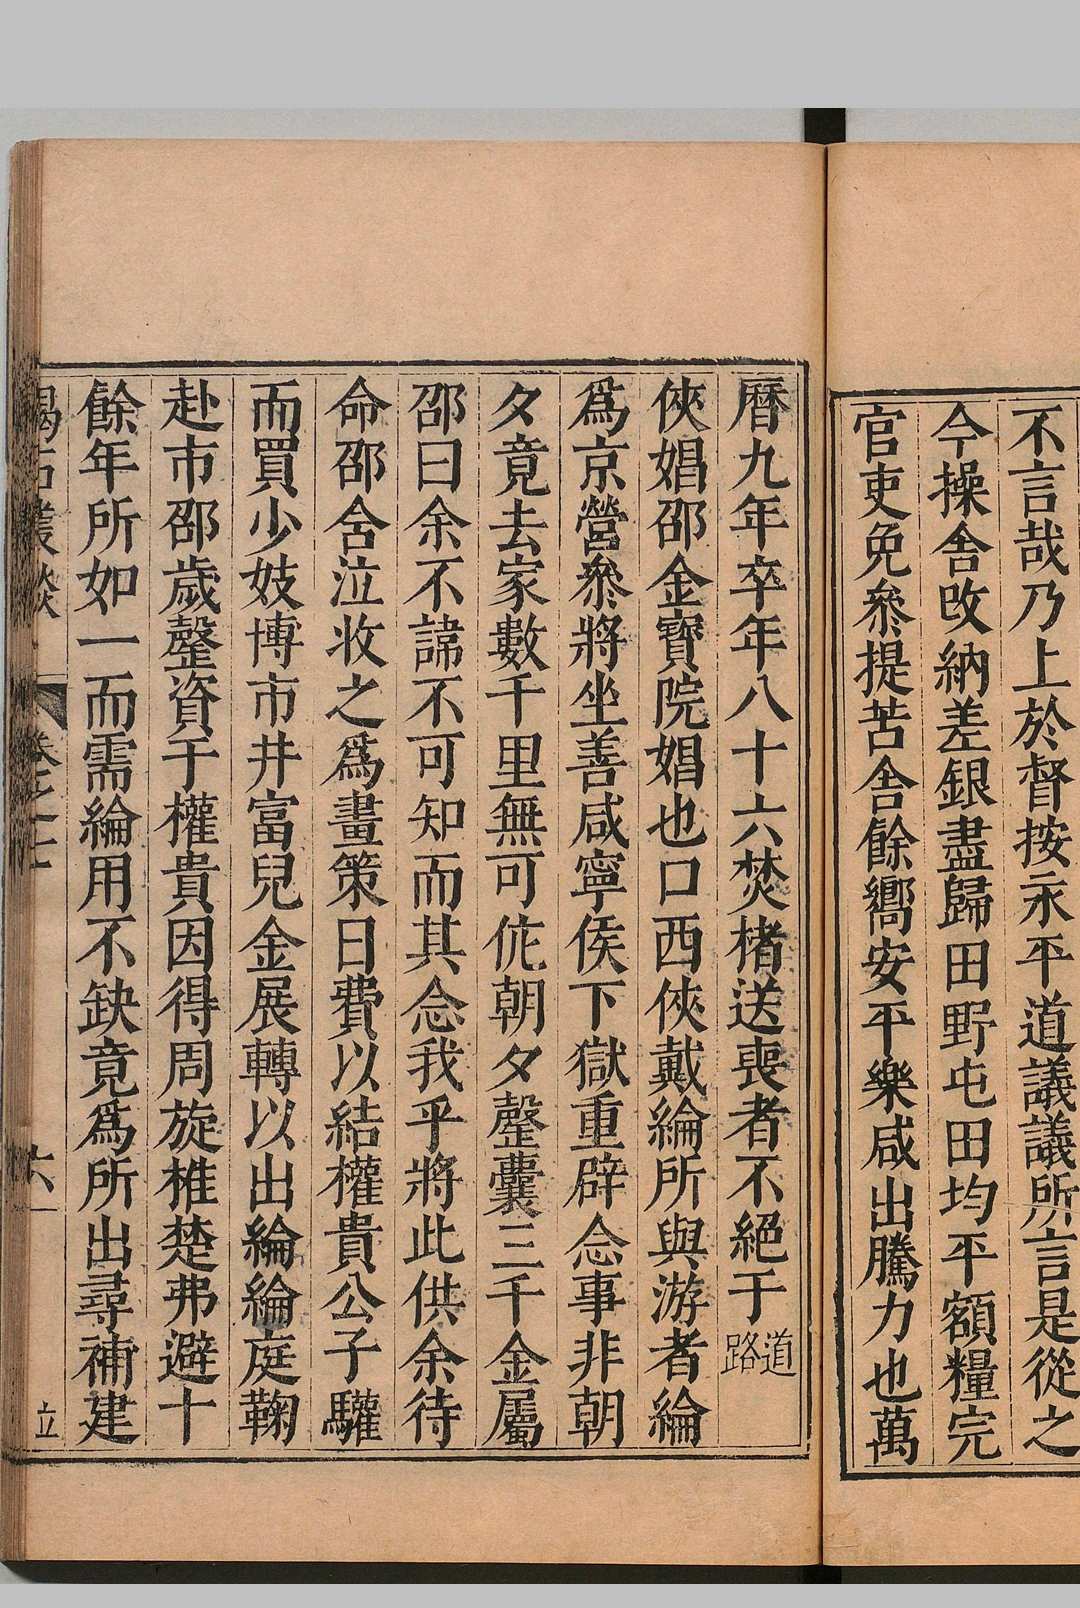 不言哉乃上於督按永平道議議所言是從之
今操舍改納差銀盡歸田野屯田均平額糧完
官吏免叅提苦舍餘嚮安平樂咸出騰力也萬
曆九年卒年八十六焚楮送喪者不絕于道路
俠娼邵金寶院娼也口西俠戴綸所與游者綸
爲京營叅將坐善咸寧侯下獄重辟念事非朝
夕竟去家數千里無可侂朝夕罄囊三千金屬
邵曰余不諱不可知而其念我乎將此供余待
命邵含泣收之爲畫策日費以結權貴公子驩
而買少妓博市井富兒金展轉以出綸綸庭鞠
赴市邵歲罄資于權貴因得周旋椎楚弗避十
餘年所如一而需綸用不缺竟爲所出尋補建
碣石叢談
卷之二上
六
立